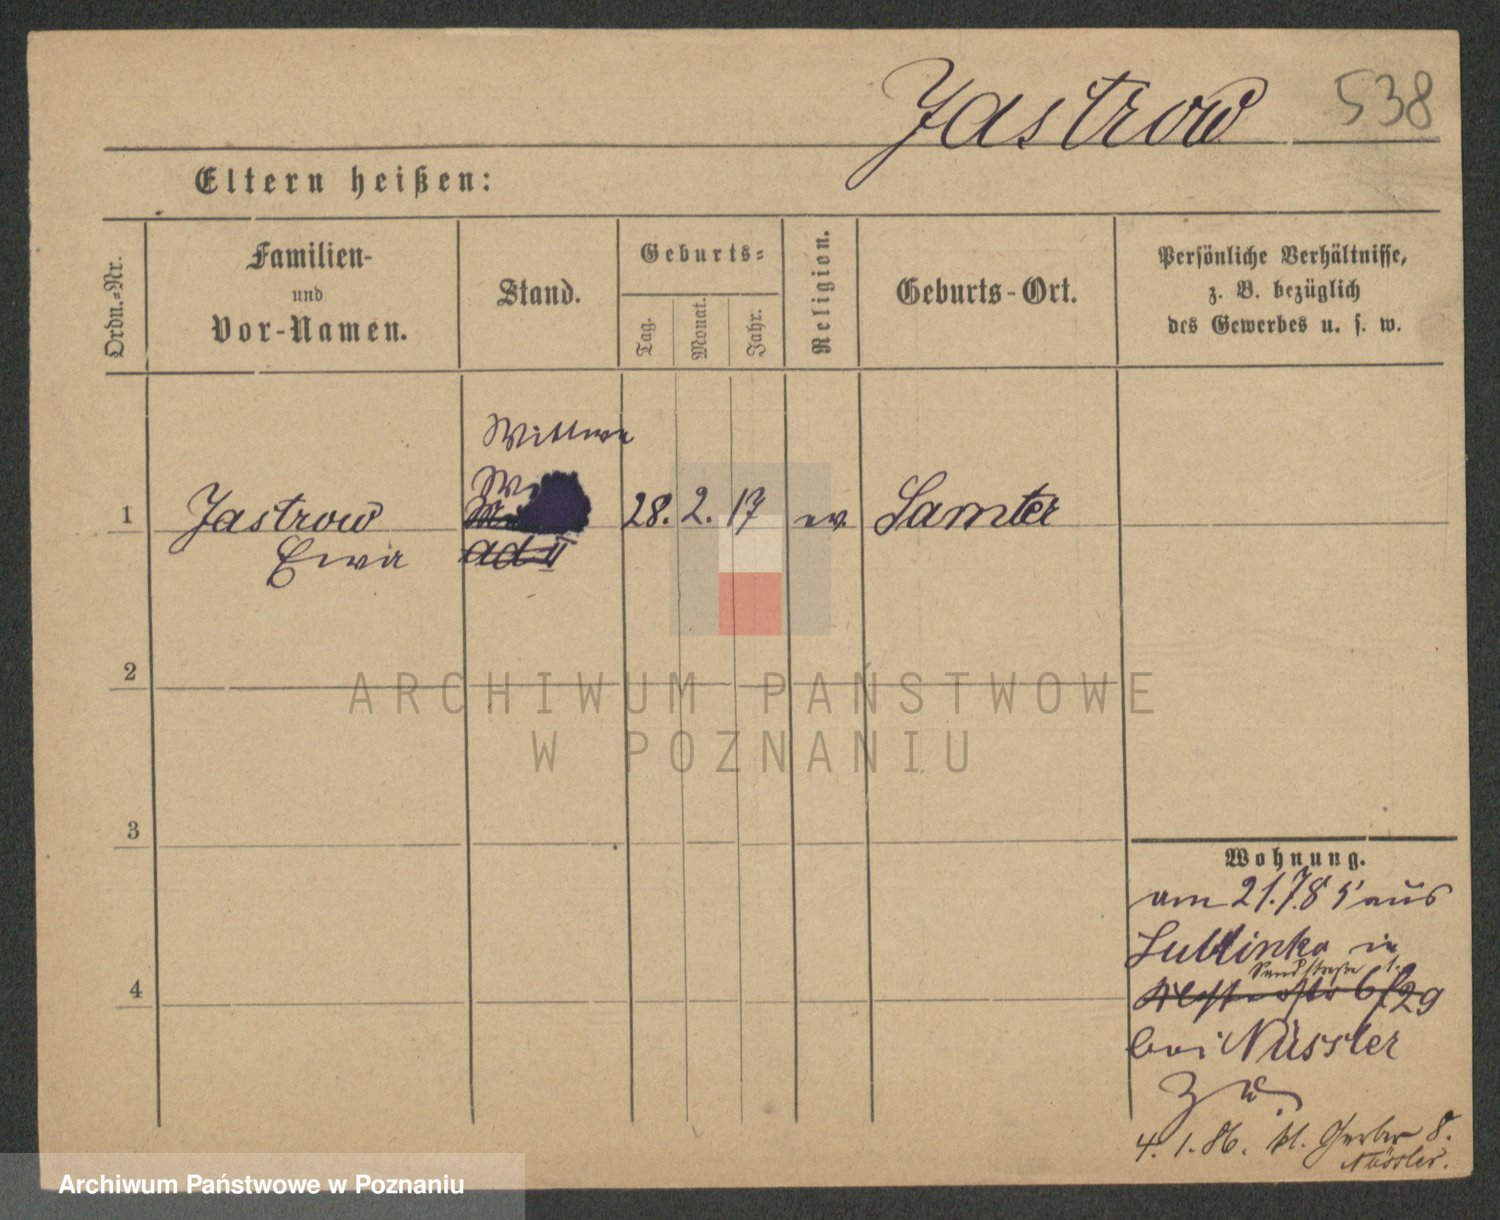 Jastrow 538
Eltern heißen:
Ordn.-Nr.
Familien-
und
Vor-Namen.
Stand.
Geburts-
Tag.
Monat.
Jahr.
Religion.
Geburts-Ort.
Persönliche Verhältnisse,
z. B. bezüglich
des Gewerbes u. s. w.
Wittwe
1 Jastrow 28. 2. 17 ev Samter
Ewa ad II
2
ARCHIWUM PAŃSTWOWE
W POZNANIU
3
4
Wohnung.
am 21.7.85 aus
in
Sandstraße 1.
6/29
bei Nüssler
zu
4.1.86. kl. Gerber 8.
Nüssler.
Archiwum Państwowe w Poznaniu